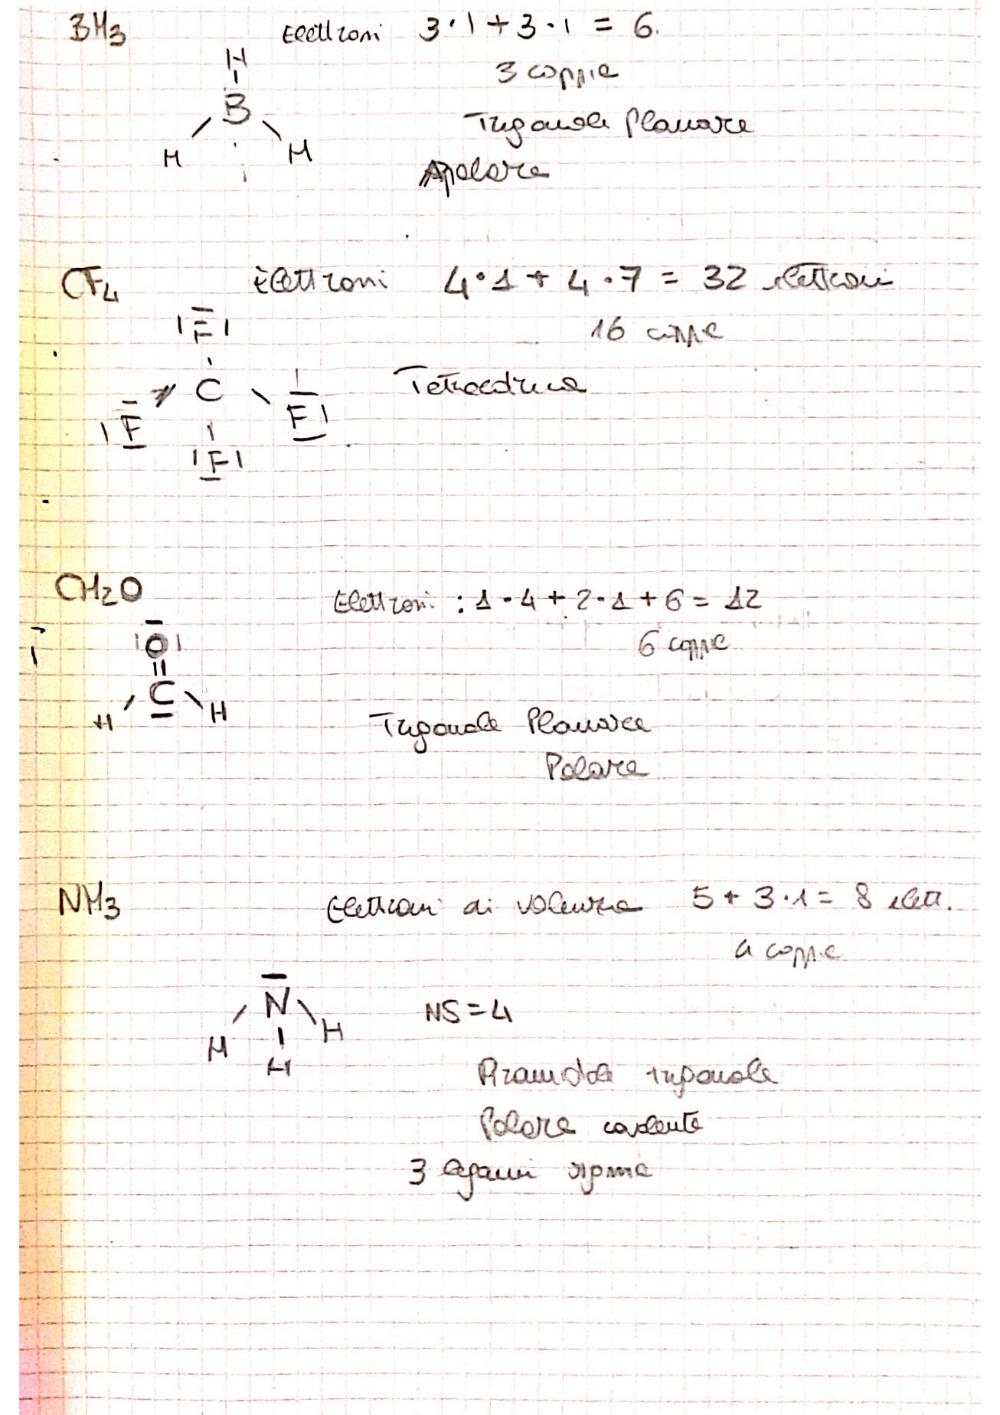 BH3 Elettroni 3·1+3·1 = 6.
3 coppie
H
B
H H
Trigonale Planare
Apolare
CF4 Elettroni 4·1+4·7 = 32 elettroni
16 coppie
F
C Tetraedrica
F F
F
CH2O Elettroni : 1·4+2·1+6 = 12
6 coppie
O
C
H H
Trigonale Planare
Polare
NH3 Elettroni di valenza 5+3·1 = 8 elett.
4 coppie
N NS=4
H H
H
Piramidale trigonale
Polare covalente
3 legami sigma